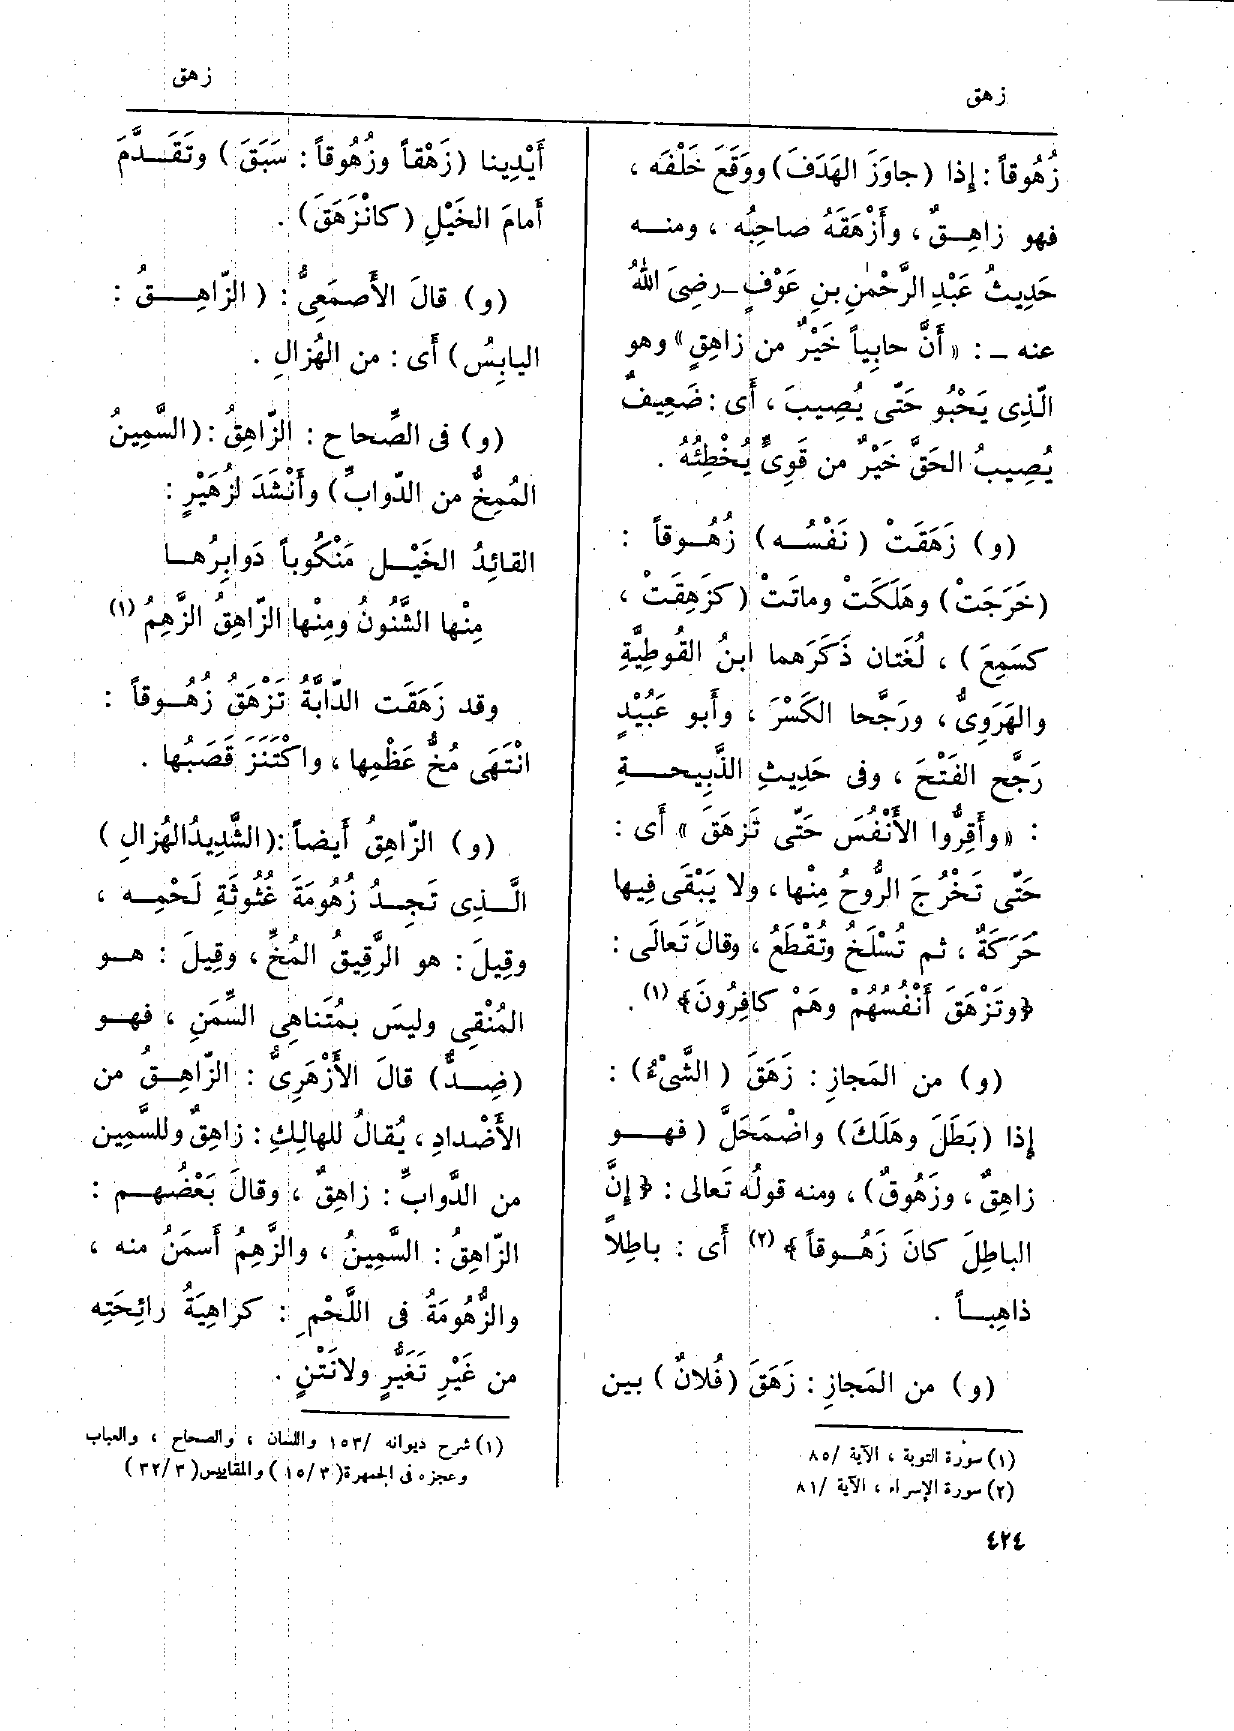 زهق
زهق
زُهُوقاً : إذا (جاوَزَ الهَدَفَ) ووَقَعَ خَلْفَه ،
فهو زاهِـقٌ ، وأَزْهَقَهُ صاحِبُه ، ومنـه
حَدِيثُ عَبْدِ الرَّحْمٰنِ بنِ عَوْفٍ ــ رضِىَ اللهُ
عنه ــ : « أَنَّ حابِياً خَيْرٌ من زاهِقٍ » وهو
الّذِى يَحْبُو حَتّى يُصِيبَ ، أَى : ضَعِيفٌ
يُصِيبُ الحَقَّ خَيْرٌ من قَوِىٍّ يُخْطِئُهُ .
(و) زَهَقَتْ (نَفْسُـه) زُهُـوقاً :
(خَرَجَتْ) وهَلَكَتْ وماتَتْ (كزَهِقَتْ ،
كسَمِعَ) ، لُغَتان ذَكَرَهما ابنُ القُوطِيَّةِ
والهَرَوِىُّ ، ورَجَّحا الكَسْرَ ، وأَبو عُبَيْدٍ
رَجَّح الفَتْحَ ، وفى حَدِيثِ الذَّبِيحـةِ
: « وأَقِرُّوا الأَنْفُسَ حَتّى تَزهَقَ » أَى :
حَتّى تَخْرُجَ الرُّوحُ مِنْها ، ولا يَبْقَى فِيها
حَرَكَةٌ ، ثم تُسْلَخُ وتُقْطَعُ ، وقالَ تَعالَى :
﴿وتَزْهَقَ أَنْفُسُهُمْ وهَمْ كافِرُونَ﴾ (١) .
(و) من المَجازِ : زَهَقَ (الشَّىْءُ) :
إذا (بَطَلَ وهَلَكَ) واضْمَحَلَّ (فهـو
زاهِقٌ ، وزَهُوقٌ) ، ومنه قولُه تَعالى : ﴿إِنَّ
الباطِلَ كانَ زَهُـوقاً﴾ (٢) أَى : باطِلاً
ذاهِبـاً .
(و) من المَجازِ : زَهَقَ (فُلانٌ) بين
(١) سورة التوبة ، الآية /٨٥
(٢) سورة الإسراء ، الآية /٨١
أَيْدِينا (زَهْقاً وزُهُوقاً : سَبَقَ) وتَقَـدَّمَ
أَمامَ الخَيْلِ (كانْزَهَقَ) .
(و) قالَ الأَصمَعِىُّ : (الزّاهِـقُ :
اليابِسُ) أَى : من الهُزالِ .
(و) فى الصِّحاح : الزّاهِقُ : (السَّمِينُ
المُمِخُّ من الدّوابِّ) وأَنْشَدَ لزُهَيْرٍ :
القائِدُ الخَيْـل مَنْكُوباً دَوابِرُهـا
مِنْها الشَّنُونُ ومِنْها الزّاهِقُ الزَّهِمُ (١)
وقد زَهَقَت الدّابَّةُ تَزْهَقُ زُهُـوقاً :
انْتَهَى مُخُّ عَظْمِها ، واكْتَنَزَ قَصَبُها .
(و) الزّاهِقُ أَيضاً : (الشَّدِيدُ الهُزالِ)
الَّـذِى تَجِـدُ زُهُومَةَ غُثُوثَةِ لَحْمِـه ،
وقِيلَ : هو الرَّقِيقُ المُخِّ ، وقِيلَ : هـو
المُنْقِى وليسَ بمُتَناهِى السِّمَنِ ، فهـو
(ضِـدٌّ) قالَ الأَزْهَرِىُّ : الزّاهِـقُ من
الأَضْدادِ ، يُقالُ للهالِكِ : زاهِقٌ وللسَّمِين
من الدَّوابِّ : زاهِقٌ ، وقالَ بَعْضُهـم :
الزّاهِقُ : السَّمِينُ ، والزَّهِمُ أَسمَنُ منه ،
والزُّهُومَةُ فى اللَّحْمِ : كراهِيَةُ رائِحَتِه
من غَيْرِ تَغَيُّرٍ ولانَتْنٍ .
(١) شرح ديوانه /١٥٣ واللسان ، والصحاح ، والعباب
وعجزه فى الجمهرة (١٥/٣) والمقاييس (٣٢/٣)
٤٢٤